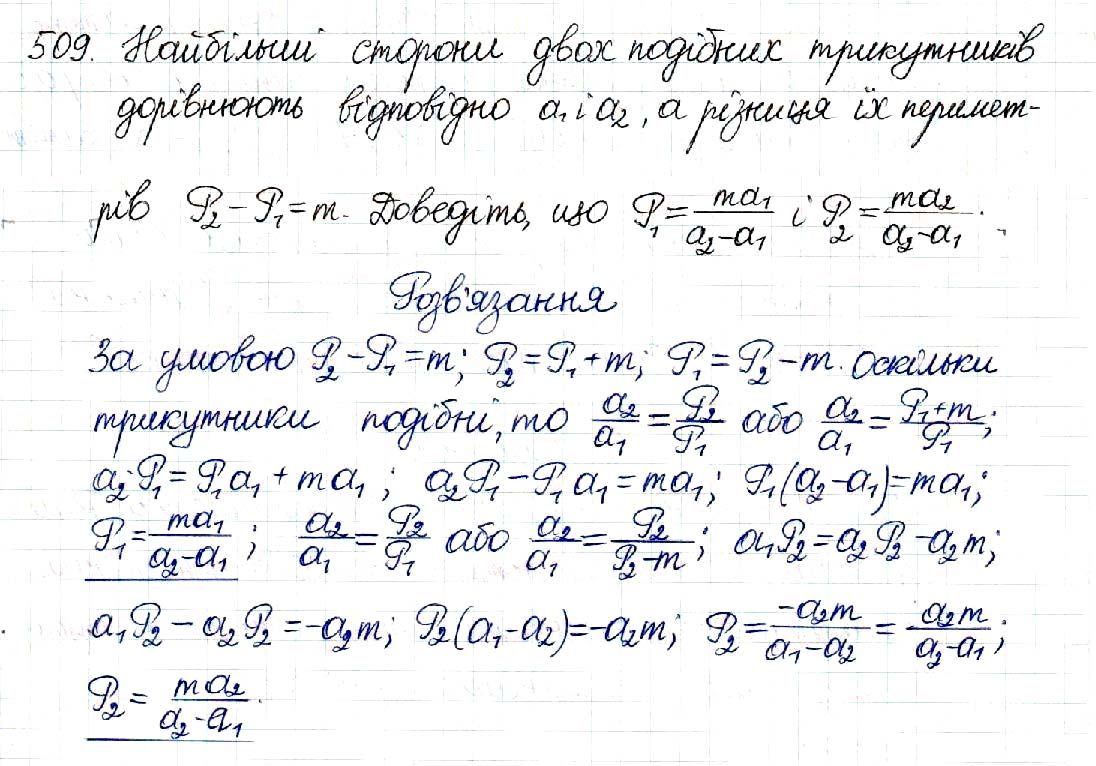 509. Найбільші сторони двох подібних трикутників
дорівнюють відповідно a₁ і a₂, а різниця їх перимет-
рів P₂ - P₁ = m. Доведіть, що P₁ = ma₁/(a₂-a₁) і P₂ = ma₂/(a₂-a₁).
Розв'язання
За умовою P₂ - P₁ = m; P₂ = P₁ + m; P₁ = P₂ - m. Оскільки
трикутники подібні, то a₂/a₁ = P₂/P₁ або a₂/a₁ = (P₁+m)/P₁;
a₂·P₁ = P₁a₁ + ma₁; a₂P₁ - P₁a₁ = ma₁; P₁(a₂-a₁) = ma₁;
P₁ = ma₁/(a₂-a₁); a₂/a₁ = P₂/P₁ або a₂/a₁ = P₂/(P₂-m); a₁P₂ = a₂P₂ - a₂m;
a₁P₂ - a₂P₂ = -a₂m; P₂(a₁-a₂) = -a₂m; P₂ = -a₂m/(a₁-a₂) = a₂m/(a₂-a₁);
P₂ = ma₂/(a₂-a₁).